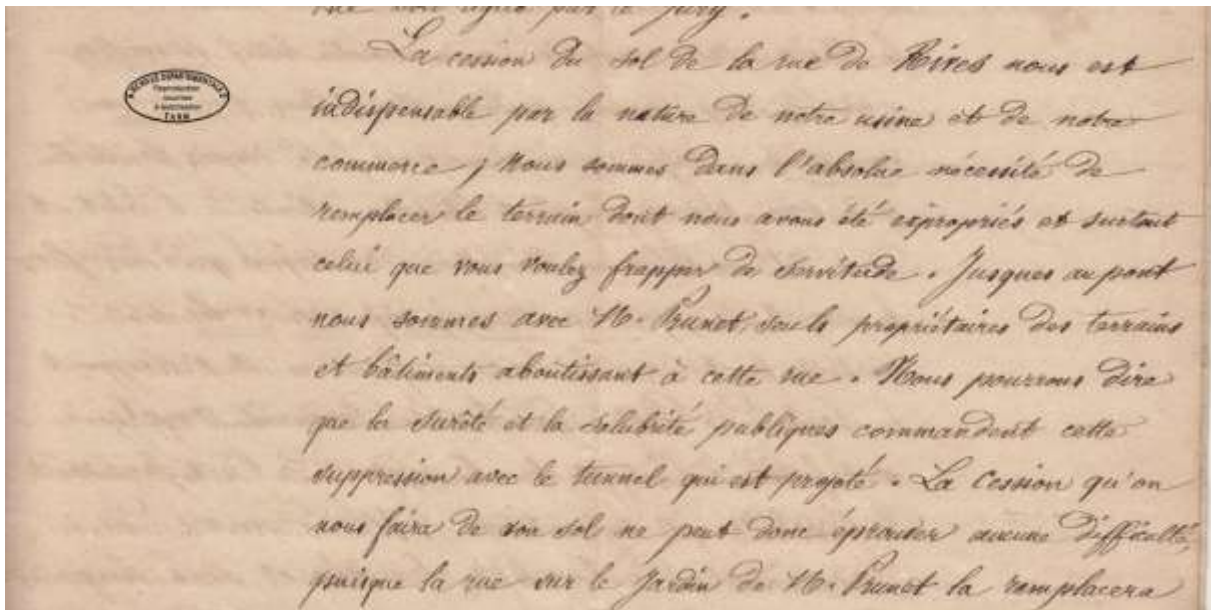 par le jury.
La cession du sol de la rue de Rives nous est
indispensable par la nature de notre usine et de notre
commerce ; Nous sommes dans l'absolue nécessité de
remplacer le terrain dont nous avons été expropriés et surtout
celui que vous voulez frapper de servitude. Jusques au pont
nous sommes avec M. Prunet, seuls propriétaires des terrains
et bâtiments aboutissant à cette rue. Nous pourrons dire
que la sureté et la salubrité publiques commandent cette
suppression avec le tunnel qui est projeté. La Cession qu'on
nous faira de son sol ne peut donc éprouver aucune difficulté,
puisque la rue sur le jardin de M. Prunet la remplacera
ARCHIVES DEPARTEMENTALES
Reproduction
soumise
à autorisation
TARN